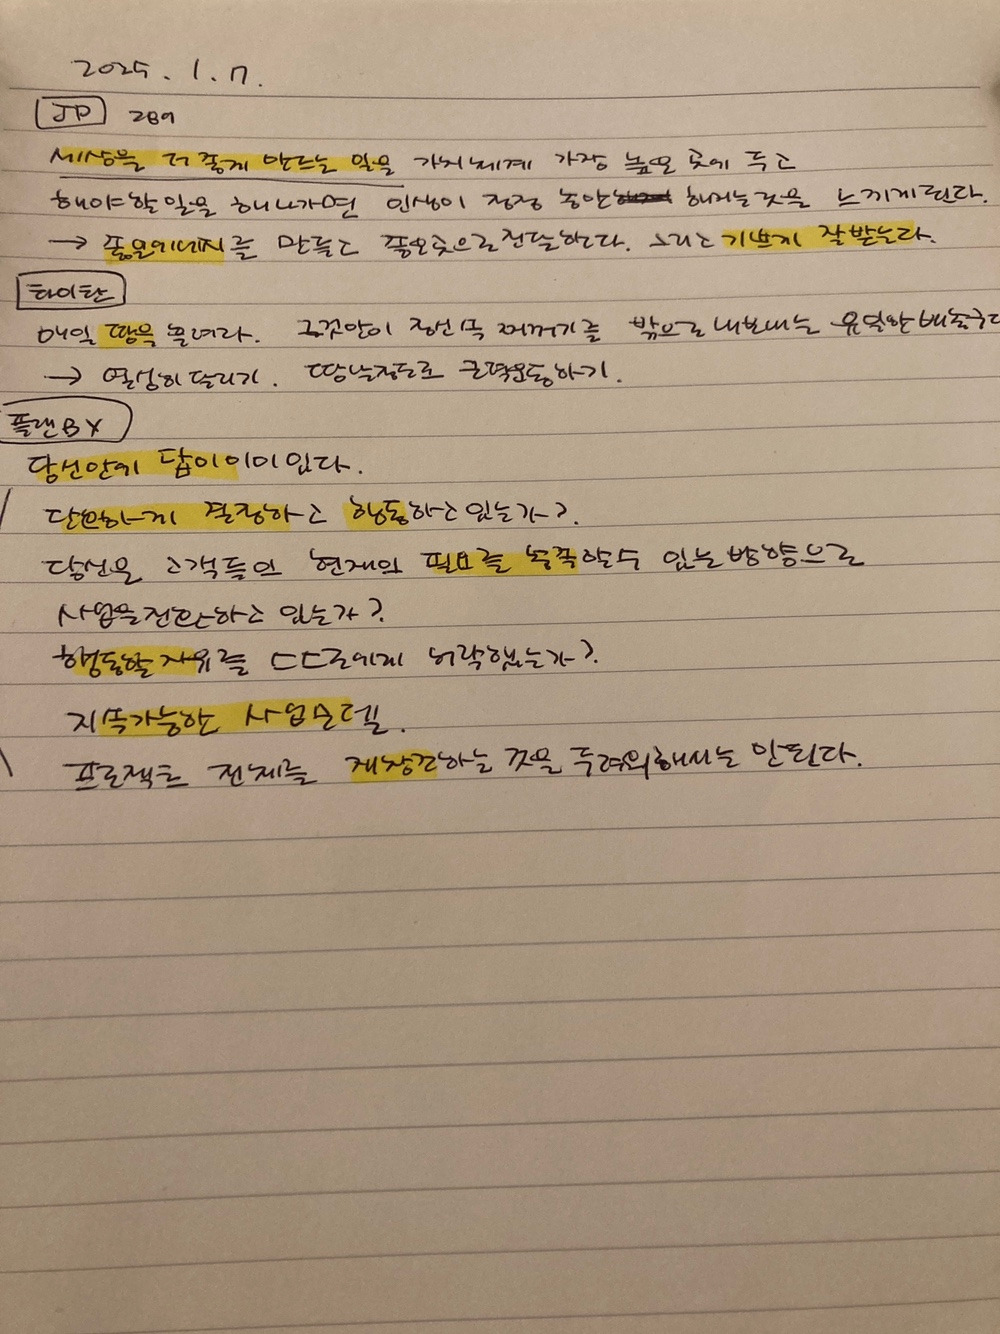 2025. 1. 7.
JP 289
세상을 더 좋게 만드는 일을 가치체계 가장 높은 곳에 두고
해야할일을 해나가면 인생이 점점 충만 해지는것을 느끼게된다.
→ 좋은에너지를 만들고 좋은곳으로전달한다. 그리고 기쁘게 잘받는다.
타이탄
매일 땀을 흘려라. 그것만이 정신 속 찌꺼기를 밖으로 내보내는 유일한 배출구다
→ 열심히 달리기. 땀날정도로 근력운동하기.
플랜BX
당신안에 답이이미있다.
단호하게 결정하고 행동하고있는가?
당신은 고객들의 현재의 필요를 충족할수 있는방향으로
사업을전환하고 있는가?
행동할자유를 스스로에게 허락했는가?
지속가능한 사업모델.
프로젝트 전체를 재창조하는 것을 두려워해서는 안된다.